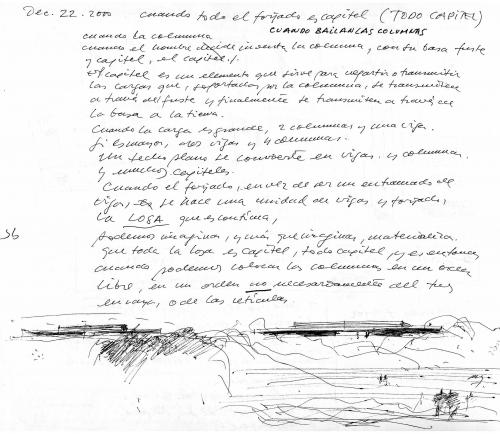 Dec. 22. 2000 cuando todo el forjado es capitel (TODO CAPITEL)
CUANDO BAILAN LAS COLUMNAS
cuando la columna
cuando el hombre decide inventa la columna, con su basa fuste
y capitel, el capitel.
El capitel es un elemento que sirve para repartir o transmitir
las cargas que, soportadas por la columna, se transmiten
a través del fuste y finalmente se transmiten a través de
la basa a la tierra.
Cuando la carga es grande, 2 columnas y una viga.
Si es mayor, vigas y 4 columnas.
Un techo plano se convierte en vigas. y columnas.
y muchos capiteles.
Cuando el forjado, en vez de ser un entramado de
vigas, se hace una unidad de vigas y forjado,
la LOSA que es continua,
podemos imaginar, y más que imaginar, materializar
que toda la losa es capitel, todo capitel, y es entonces
cuando podemos colocar las columnas en un orden
libre, en un orden no necesariamente del
o de las retículas.